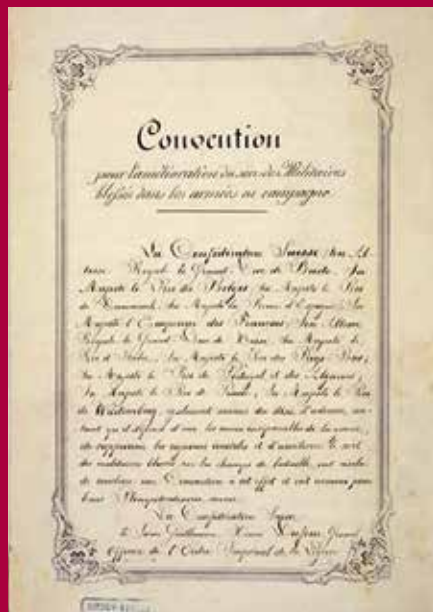 Convention
pour l'amélioration du sort des Militaires
blessés dans les armées en campagne
La Confédération Suisse, Son Al-
tesse Royale le Grand Duc de Bade, Sa
Majesté le Roi des Belges, Sa Majesté le Roi
de Danemark, Sa Majesté la Reine d'Espagne, Sa
Majesté l'Empereur des Français, Son Altesse
Royale le Grand Duc de Hesse, Sa Majesté le
Roi d'Italie, Sa Majesté le Roi des Pays-Bas,
Sa Majesté le Roi de Portugal et des Algarves,
Sa Majesté le Roi de Prusse, Sa Majesté le Roi
de Wurtemberg, également animés du désir d'adoucir, au-
tant qu'il dépend d'eux, les maux de la guerre,
de supprimer les rigueurs inutiles et d'améliorer le sort
des militaires blessés sur les champs de bataille, ont résolu
de conclure une Convention à cet effet et ont nommé pour
leurs Plénipotentiaires, savoir:
La Confédération Suisse
le Sieur Guillaume Henri Dufour, Grand
Officier de l'Ordre Impérial de la Légion